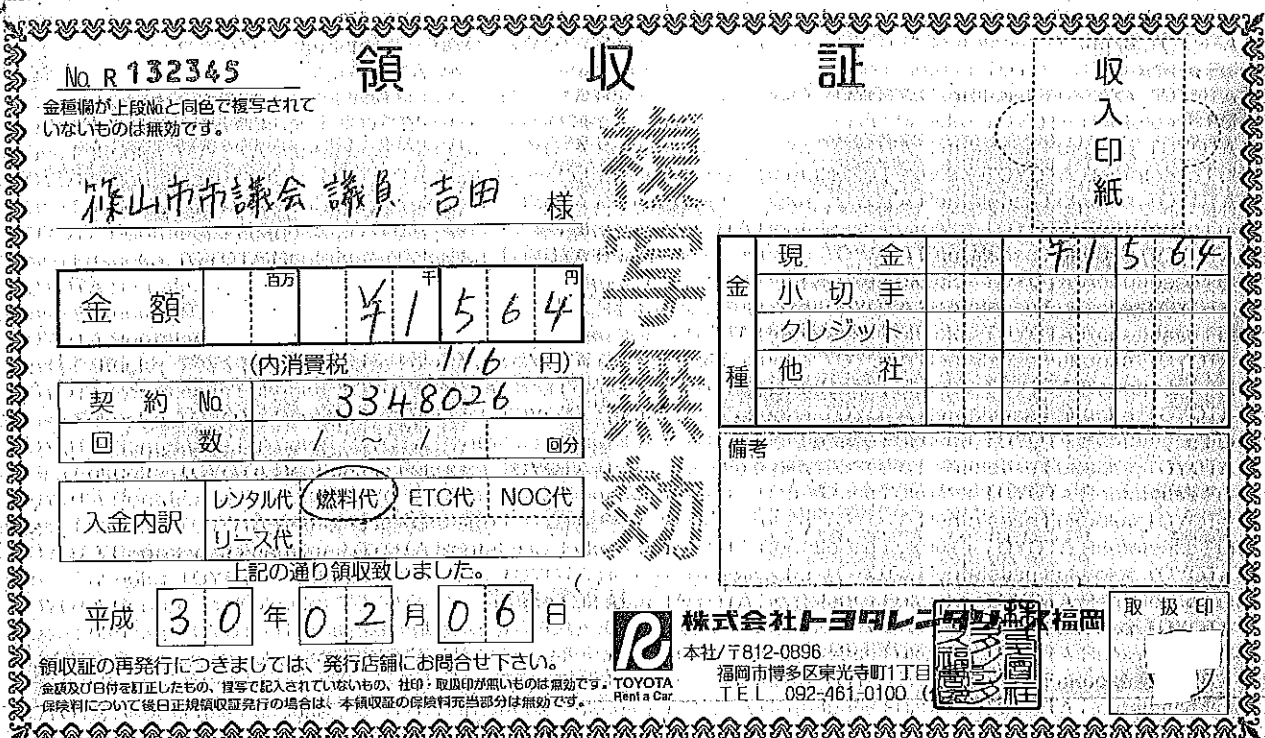 領収証
No. R 132345
金種欄が上段No.と同色で複写されて
いないものは無効です。
篠山市市議会議員 吉田 様
収入印紙
複写無効
金額 百万 千 円 ¥1564
(内消費税 116 円)
契約No. 3348026
回数 1 ~ 1 回分
入金内訳 レンタル代 燃料代 ETC代 NOC代
リース代
上記の通り領収致しました。
平成 30年 02月 06日
領収証の再発行につきましては、発行店舗にお問合せ下さい。
金額及び日付を訂正したもの、複写で記入されていないもの、社印・取扱印が無いものは無効です。
保険料について後日正規領収証発行の場合は、本領収証の保険料充当部分は無効です。
金種
現金 ¥1564
小切手
クレジット
他社
備考
TOYOTA
Rent a Car
株式会社トヨタレンタリース福岡
本社/〒812-0896
福岡市博多区東光寺町1丁目
TEL 092-461-0100
取扱印